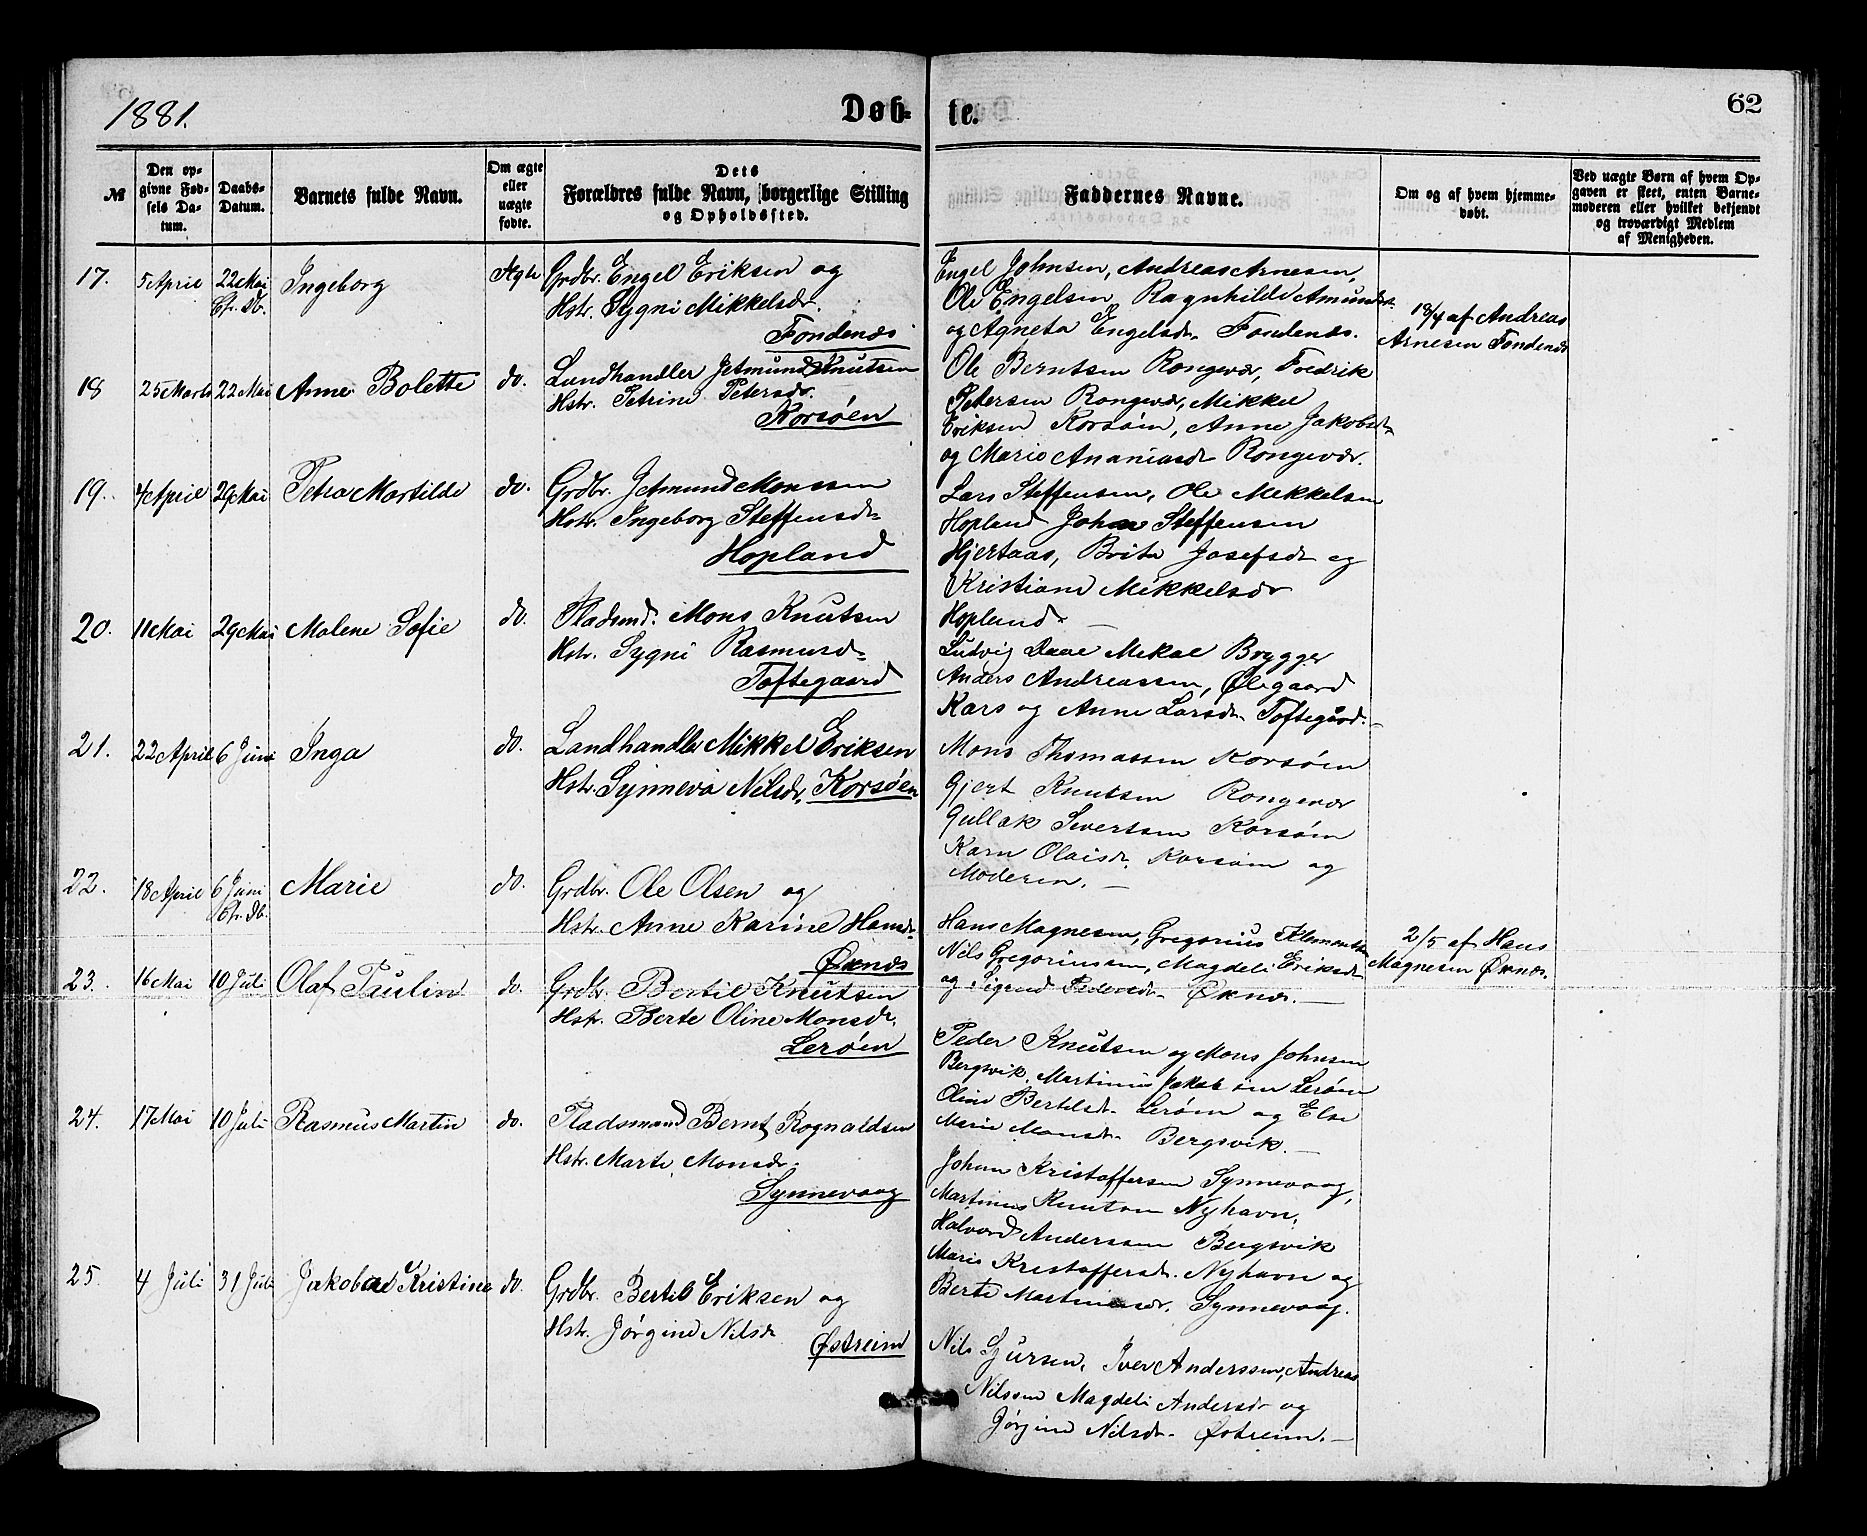 1881.
Døb-
te.
62
№
Den op-
givne Fød-
sels Da-
tum.
Daabs-
Datum.
Barnets fulde Navn.
Om ægte
eller
uægte
fødte.
Dets
Forældres fulde Navn, borgerlige Stilling
og Opholdssted.
Faddernes Navne.
Om og af hvem hjemme-
døbt.
Ved uægte Børn af hvem Op-
gaven er skeet, enten Barne-
moderen eller hvilket bekjendt
og troværdigt Medlem
af Menigheden.
17. 5 April 22 Mai Ingeborg Ægte Grdbr. Engel Eriksen og
Hstr. Sygni Mikkelsdr.
Fondenæs
Engel Johnsen, Andreas Arnesen,
Ole Engelsen, Ragnhilde Amundsdr.
og Agneta Engelsdr. Fondenæs.
18/4 af Andreas
Arnesen Fondenæs
18 25 Marts 22 Mai Anne Bolette do. Landhandler Jetmund Knutsen
Hstr. Petrine Petersdr.
Korsøen
Ole Berntsen Rongevær, Fredrik
Petersen Rongevær, Mikkel
Eriksen Korsøen, Anne Jakobsdr
og Marie Ananiasdr Rongevær.
19. 4 April 29 Mai Petra Martilde do. Grdbr. Jetmund Monssen
Hstr. Ingeborg Steffensdr
Hopland
Lars Steffensen, Ole Mikkelsen
Hopland Johan Steffensen
Hjertaas, Brita Josefsdr og
Kristiane Mikkelsdr
Hopland.
20. 11 Mai 29 Mai Malene Sofie do. Pladsmd. Mons Knutsen
Hstr. Sygni Rasmusdr
Toftegaard
Ludvig Daae Mikal Brygger
Anders Andreassen, Ølegaard
Kars og Anne Larsdr Toftegaard.
21. 22 April 6 Juni Inga do. Landhandler Mikkel Eriksen
Hstr. Synneva Nilsdr, Korsøen
Mons Thomassen Korsøen
Gjert Knutsen Rongevær
Gullak Sivertsen Korsøen
Karn Olaisdr. Korsøen og
Moderen.
22. 18 April 6 Juni Marie do. Grdbr. Ole Olsen og
Hstr. Anne Karine Hansdr
Øknæs
Hans Magnesen, Gregorius Klementsen
Nils Gregoriussen, Magdeli Eriksdr
og Sigrud Pedersdr Øknæs.
2/5 af Hans
Magnesen Øknæs.
23. 16 Mai 10 Juli Olaf Paulin do. Grdbr. Bertil Knutsen
Hstr. Berte Oline Monsdr.
Lerøen
Peder Knutsen og Mons Johnsen
Bergsvik, Martinius Jakobsen Lerøen
Oline Bertilsdr Lerøen og Else
Marie Monsdr. Bergsvik.
24. 17 Mai 10 Juli Rasmus Martin do. Pladsmand Bernt Rognaldsen
Hstr. Marte Monsdr.
Synnevaag
Johan Kristoffersen Synnevaag,
Martinus Knutsen Nyhavn,
Halvord Anderssen Bergsvik
Marie Kristoffersdr. Nyhavn og
Berte Martinusdr. Synnevaag.
25. 4 Juli 31 Juli Jakobas Kristine do. Grdbr. Bertil Eriksen og
Hstr. Jørgine Nilsdr
Østreim
Nils Sjursen, Iver Anderssen, Andreas
Nilssen Magdeli Andersdr og
Jørgine Nilsdr Østreim.